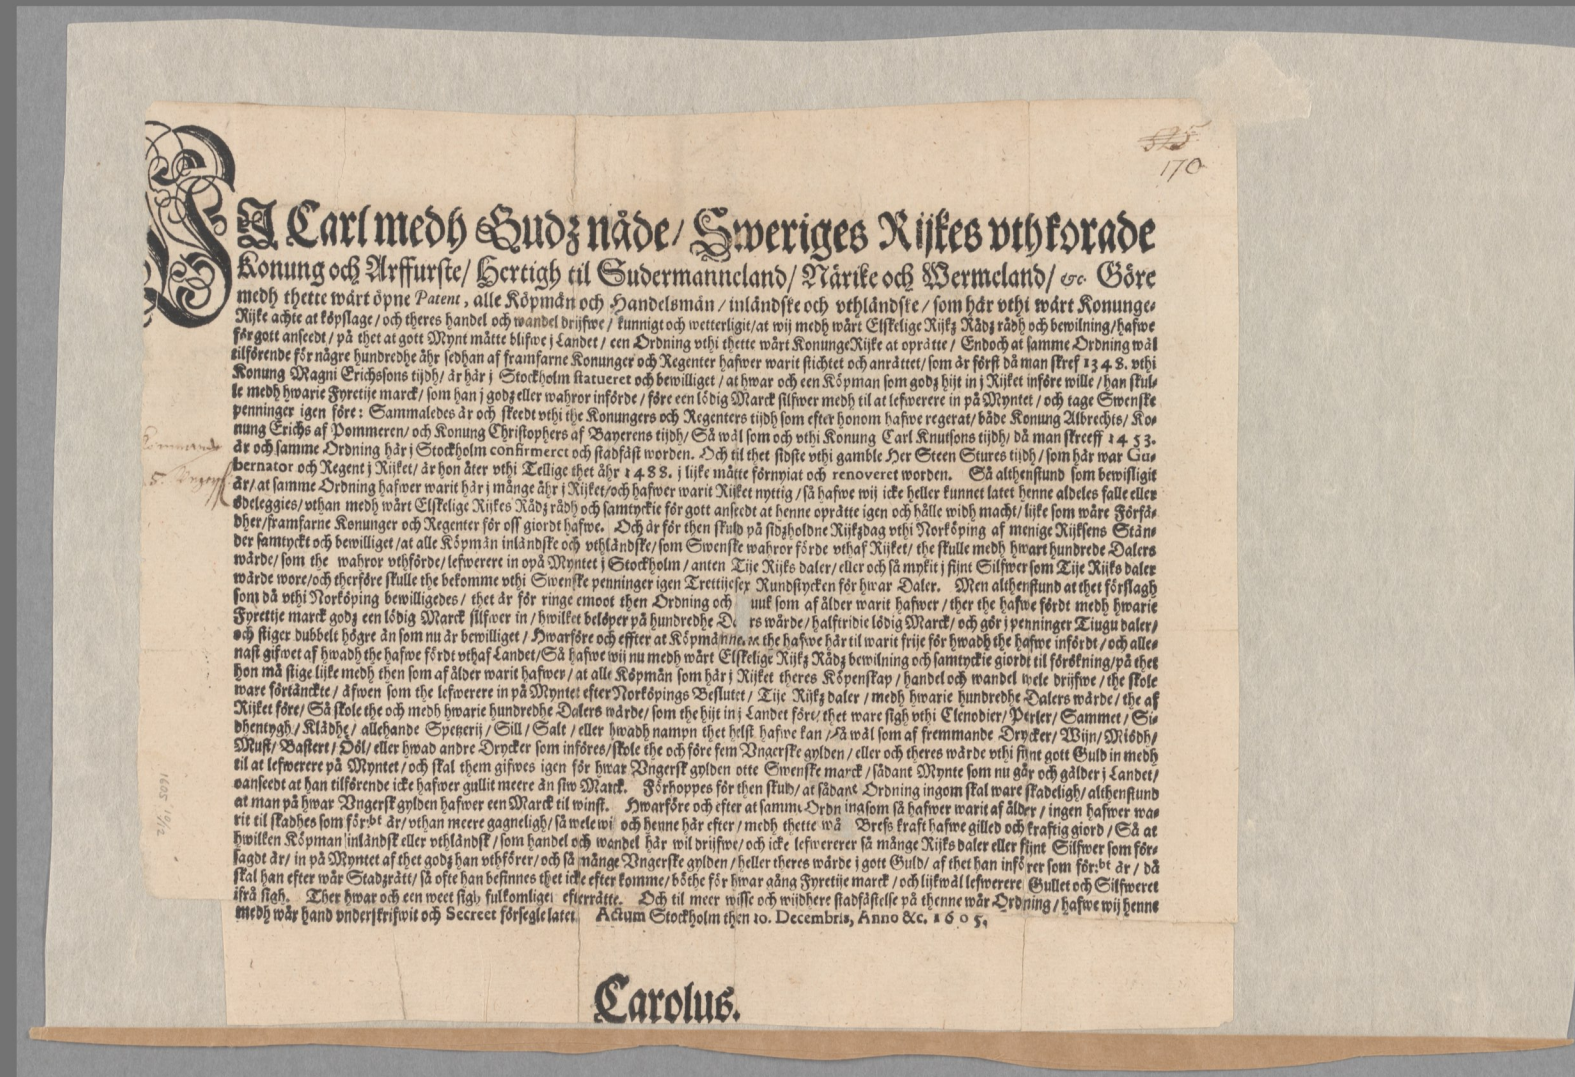 325
170
WJ Carl medh Gudz nåde/ Sweriges Rijkes vthkorade
Konung och Arffurste/ Hertigh til Sudermanneland/ Närike och Wermeland/ &c. Göre
medh thette wårt öpne Patent, alle Köpmän och Handelsmän/ inländske och vthländske/ som här vthi wårt Konunge-
Rijke achte at köpslage/ och theres handel och wandel drijfwe/ kunnigt och wetterligit/ at wij medh wårt Elskelige Rijkz Rådz rådh och bewilning/ hafwe
för gott ansedt/ på thet at gott Mynt måtte blifwe j Landet/ een Ordning vthi thette wårt KonungeRijke at oprätte/ Endoch at samme Ordning wäl
tilförende för någre hundredhe åhr sedhan af framfarne Konunger och Regenter hafwer warit stichtet och anrättet/ som är först då man skref 1348. vthi
Konung Magni Erichssons tijdh/ är här j Stockholm statueret och bewilliget/ at hwar och een Köpman som godz hijt in j Rijket införe wille/ han skul-
le medh hwarie Fyretije marck/ som han j godz eller wahror införde/ före een lödig Marck silfwer medh til at lefwerere in på Myntet/ och tage Swenske
penninger igen före: Sammaledes är och skeedt vthi the Konungers och Regenters tijdh som efter honom hafwe regerat/ både Konung Albrechts/ Ko-
nung Erichs af Pommeren/ och Konung Christophers af Bayerens tijdh/ Så wäl som och vthi Konung Carl Knutsons tijdh/ då man skreeff 1453.
är och samme Ordning här j Stockholm confirmeret och stadfäst worden. Och til thet sidste vthi gamble Her Steen Stures tijdh/ som här war Gu-
bernator och Regent j Rijket/ är hon åter vthi Tellige thet åhr 1488. j lijke måtte förnyiat och renoveret worden. Så althenstund som bewisligit
är/ at samme Ordning hafwer warit här j månge åhr j Rijket/ och hafwer warit Rijket nyttig/ så hafwe wij icke heller kunnet latet henne aldeles falle eller
ödeleggies/ vthan medh wårt Elskelige Rijkes Rådz rådh och samtyckie för gott ansedt at henne oprätte igen och hålle widh macht/ lijke som wåre Förfä-
dher/ framfarne Konunger och Regenter för oss giordt hafwe. Och är för then skuld på sidzholdne Rijkzdag vthi Norköping af menige Rijksens Stän-
der samtyckt och bewilliget/ at alle Köpmän inländske och vthländske/ som Swenske wahror förde vthaf Rijket/ the skulle medh hwart hundrede Dalers
wärde/ som the wahror vthförde/ lefwerere in opå Myntet j Stockholm/ anten Tije Rijks daler/ eller och så mykit j fijnt Silfwer som Tije Rijks daler
wärde wore/ och therföre skulle the bekomme vthi Swenske penninger igen Trettijesex Rundstycken för hwar Daler. Men althenstund at thet förslagh
som då vthi Norköping bewilligedes/ thet är för ringe emoot then Ordning och uuk som af ålder warit hafwer/ ther the hafwe fördt medh hwarie
Fyrettije marck godz een lödig Marck silfwer in/ hwilket belöper på hundredhe Da rs wärde/ halftridie lödig Marck/ och gör j penninger Tiugu daler/
och stiger dubbelt högre än som nu är bewilliget/ Hwarföre och effter at Köpmännene the hafwe här til warit frije för hwadh the hafwe infördt/ och alle-
nast gifwet af hwadh the hafwe fördt vthaf Landet/ Så hafwe wij nu medh wårt Elskelige Rijkz Rådz bewilning och samtyckie giordt til förökning/ på thet
hon må stige lijke medh then som af ålder warit hafwer/ at alle Köpmän som här j Rijket theres Köpenskap/ handel och wandel wele drijfwe/ the skole
ware förtänckte/ äfwen som the lefwerere in på Myntet efter Norköpings Beslutet/ Tije Rijkz daler/ medh hwarie hundredhe Dalers wärde/ the af
Rijket före/ Så skole the och medh hwarie hundredhe Dalers wärde/ som the hijt in j Landet fört/ thet ware sigh vthi Clenodier/ Perler/ Sammet/ Si-
dhentygh/ Klädhe/ allehande Spetzerij/ Sill/ Salt/ eller hwadh nampn thet helst hafwe kan/ så wäl som af fremmande Drycker/ Wijn/ Miödh/
Must/ Bastert/ Dööl/ eller hwad andre Drycker som införes/ skole the och före fem Vngerske gylden/ eller och theres wärde vthi fijnt gott Guld in medh
til at lefwerere på Myntet/ och skal them gifwes igen för hwar Vngersk gylden otte Swenske marck/ sådant Mynte som nu går och gälder j Landet/
oansedt at han tilförende icke hafwer gullit meere än siw Marck. Förhoppes för then skuld/ at sådane Ordning ingom skal ware skadeligh/ althenstund
at man på hwar Vngersk gylden hafwer een Marck til winst. Hwarföre och efter at samme Ordn ing som så hafwer warit af ålder/ ingen hafwer wa-
rit til skadhes som för:bt är/ vthan meere gagneligh/ så wele wi och henne här efter/ medh thette wå Brefs kraft hafwe gilled och kraftig giord/ Så at
hwilken Köpman inländsk eller vthländsk/ som handel och wandel här wil drijfwe/ och icke lefwererer så månge Rijks daler eller fijnt Silfwer som för-
sagdt är/ in på Myntet af thet godz han vthförer/ och så månge Vngerske gylden/ heller theres wärde j gott Guld/ af thet han införer som för:bt är/ då
skal han efter wår Stadzrätt/ så ofte han befinnes thet icke efter komme/ böthe för hwar gång Fyretije marck/ och lijkwäl lefwerere Gullet och Silfweret
ifrå sigh. Ther hwar och een weet sigh fulkomliget efterrätte. Och til meer wisse och wijdhere stadfästelse på thenne wår Ordning/ hafwe wij henne
medh wår hand vnderskrifwit och Secreet försegle latet. Actum Stockholm then 10. Decembris, Anno &c. 1605.
Carolus.
1605 10/12